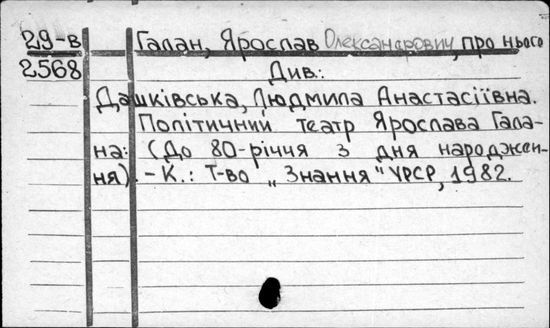 29-в Галан, Ярослав Олександрович, про нього
2568 Див.:
Дашківська, Людмила Анастасіївна.
Політичний театр Ярослава Гала-
на: (До 80-річчя з дня народжен-
ня). - К.: Т-во „Знання" УРСР, 1982.